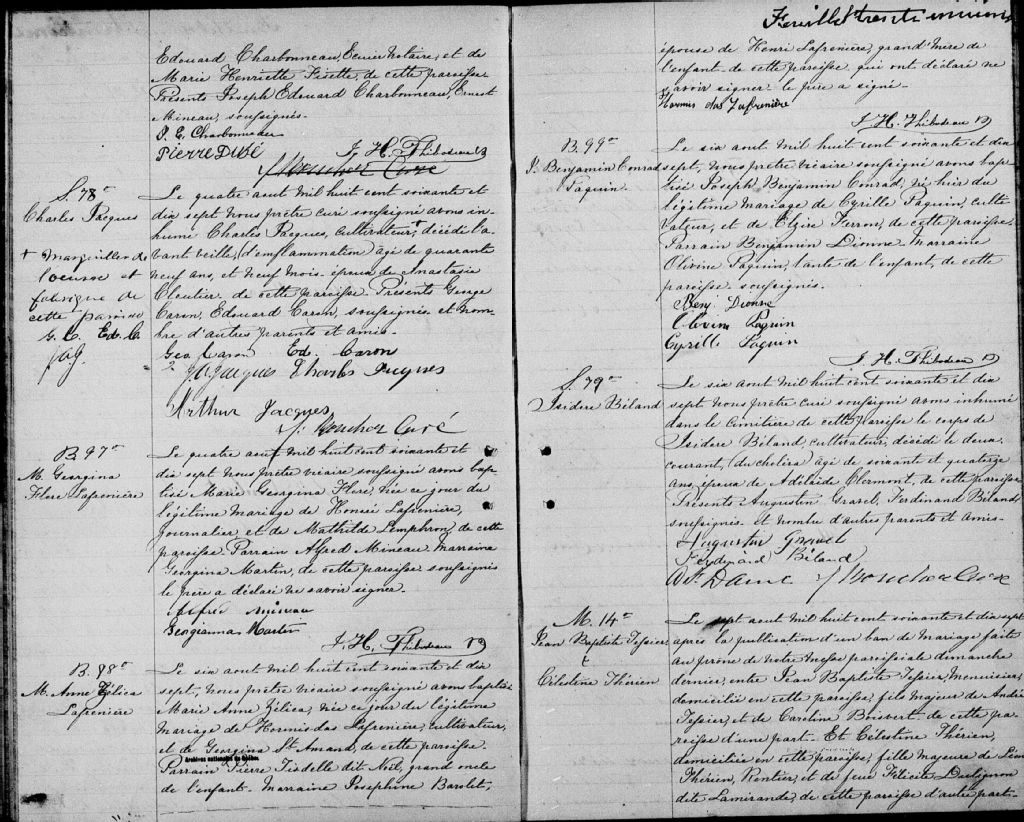 Edouard Charbonneau, Ecuier Notaire, et de
Marie Henriette Fisette, de cette paroisse
Présents Joseph Edouard Charbonneau, Ernest
Mineau, soussignés.
J. E. Charbonneau
Pierre Dubé
J. H. Thibodeau
S. 78e
Charles Jacques
+ marguiller de
l'oeuvre et
fabrique de
cette paroisse
G. C. Ed. C.
JAJ.
Le quatre aout mil huit cent soixante et
dix sept nous prêtre curé soussigné avons in-
humé Charles Jacques, cultivateur,+ décédé l'a-
vant veille, (d'inflammation) âgé de quarante
neuf ans, et neuf mois. époux de Anastasie
Cloutier. de cette paroisse. Présents George
Caron, Edouard Caron, soussignés et nom-
bre d'autres parents et amis.
Geo. Caron Ed. Caron
J.A. Jacques Charles Jacques
Arthur Jacques
J. Boucher Curé
B. 97e
M. Georgina
Flore Lafrenière
Le quatre aout mil huit cent soixante et
dix sept nous prêtre vicaire soussigné avons bap-
tisé Marie Georgina Flore, née ce jour du
légitime mariage de Honoré Lafrenière,
journalier, et de Mathilde Lemphron, de cette
paroisse Parrain Alfred Mineau Marraine
Georgina Martin, de cette paroisse soussignés
le père a déclaré ne savoir signer.
Alfred Mineau
Georgianna Martin
J. H. Thibodeau
B. 98e
M. Anne Zélica
Lafrenière
Le six aout mil huit cent soixante et dix
sept, nous prêtre vicaire soussigné avons baptisé
Marie Anne Zélica, née ce jour du légitime
mariage de Hormisdas Lafrenière, cultivateur,
et de Georgina St Amand, de cette paroisse.
Archives nationales du Québec
Parrain Pierre Tisdelle dit Noël, grand oncle
de l'enfant. Marraine Josephine Barolet,
Feuillet trente
épouse de Henri Lafrenière, grand'mère de
l'enfant de cette paroisse qui ont déclaré ne
savoir signer. le père a signé.
Hormis das Lafrenière
J. H. Thibodeau
B. 99e
J. Benjamin Conrad
Paquin
Le six aout mil huit cent soixante et dix
sept, nous prêtre vicaire soussigné avons bap-
tisé Joseph Benjamin Conrad, né hier du
légitime mariage de Cyrille Paquin, culti-
vateur, et de Elzire Ferron, de cette paroisse.
Parrain Benjamin Dionne. Marraine
Olivine Paquin, tante de l'enfant, de cette
paroisse soussignés.
Benj. Dionne
Olivine Paquin
Cyrille Paquin
J. H. Thibodeau
S. 79e
Isidore Béland
Le six aout mil huit cent soixante et dix
sept nous prêtre curé soussigné avons inhumé
dans le cimitière de cette paroisse le corps de
Isidore Béland cultivateur, décédé le deux
courant, (du choléra) âgé de soixante et quatorze
ans, époux de Adélaide Clermont, de cette paroisse
Présents Augustin Gravel, Ferdinand Béland
soussignés. et nombre d'autres parents et amis.
Augustin Gravel
Ferdinand Béland
J. Boucher Curé
M. 14e
Jean Baptiste Tessier
&
Célestine Thérien
Le sept aout mil huit cent soixante et dix sept
après la publication d'un ban de mariage faite
au prône de notre messe paroissiale dimanche
dernier, entre Jean Baptiste Tessier, menuisier,
domicilié en cette paroisse, fils majeur de André
Tessier, et de Caroline Boisvert de cette pa-
roisse d'une part. Et Célestine Thérien,
domiciliée en cette paroisse, fille majeure de Léon
Thérien, Rentier, et de feue Félicité Davignon
dite Lamirande, de cette paroisse d'autre part